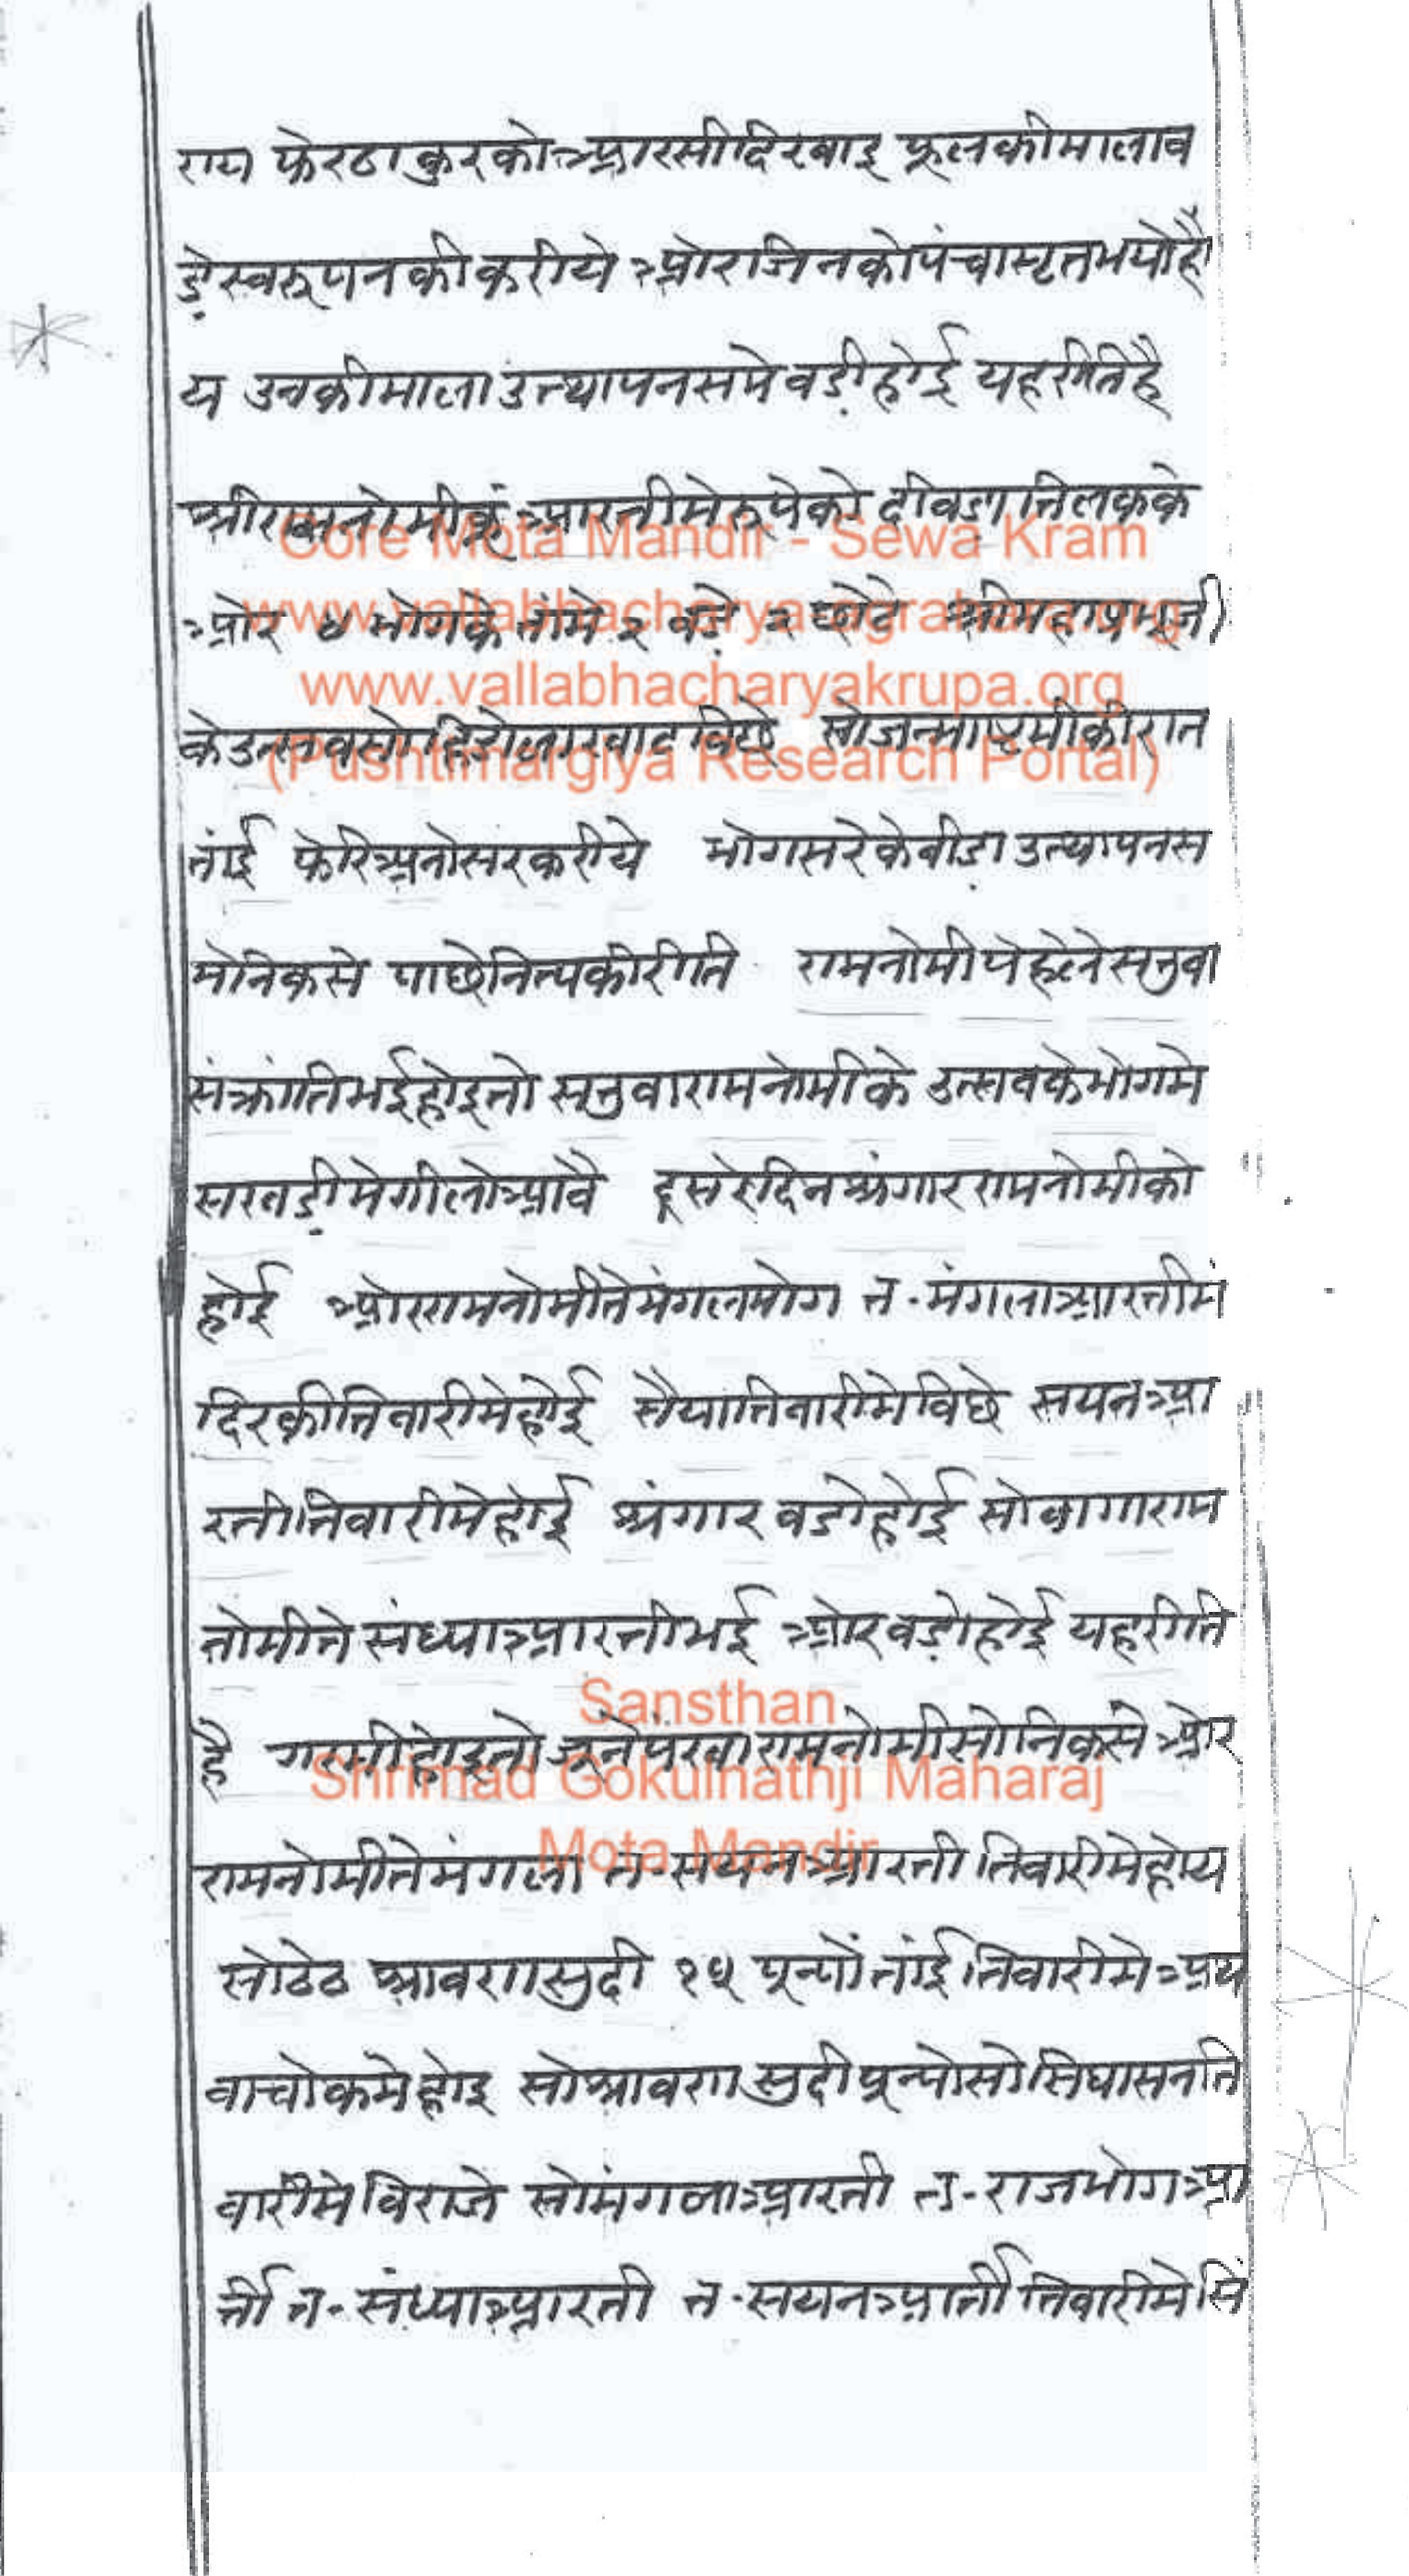 राय फेरठाकुरकोआरसीदिखाइ फूलकीमालाव
ड़ेस्वरूपनकीकरीये ओरजिनकोपंचामृतभयोहो
य उनकीमाला उत्थापनसमे वड़ीहोई यहरीतिहै
श्रीरामनोमीकूं आरतीमेरूपेको दीवड़ा तिलकके
ओर ४ भोगके तामे २ वड़े २ छोटे श्रीमहाप्रभूजी
केउत्सवसो हिंडोलाखाट विछे सोजन्माष्टमीकीरात
तांई फेरिअनोसरकरीये भोगसरेकेवीड़ा उत्थापनस
मेनिकसे पाछेनित्यकीरीति रामनोमीपेहेलेसतुवा
संक्रांतिभईहोइतो सतुवारामनोमीके उत्सवकेभोगमे
सखड़ीमेगीलोआवै दूसरेदिनश्रंगाररामनोमीको
होई ओररामनोमीतेमंगलभोग त॰ मंगलाआरतीमं
दिरकीतिवारीमेहोई सैयातिवारीमेविछे सयनआ
रतीतिवारीमेहोई श्रंगार वडोहोई सोवागाराम
नोमीते संध्याआरतीभई ओरवड़ोहोई यहरीति
है गरमीहोइतो जूनेपंखारामनोमीसोनिकसे ओर
रामनोमीतेमंगला त॰ सयनआरती तिवारीमेहोय
सोठेठ श्रावणसुदी १५ पून्यों तांई तिवारीमेअथ
वाचोकमेहोइ सोश्रावण सुदीपून्योसोसिघासनति
वारीमेविराजे सोमंगलाआरती त॰ राजभोगआ
र्ती त॰ संध्याआरती त॰ सयनआर्ती तिवारीमेसिं
Gore Mota Mandir - Sewa Kram
www.vallabhacharyakrupa.org
(Pushtimargiya Research Portal)
Sansthan
Shrimad Gokulnathji Maharaj
Mota Mandir